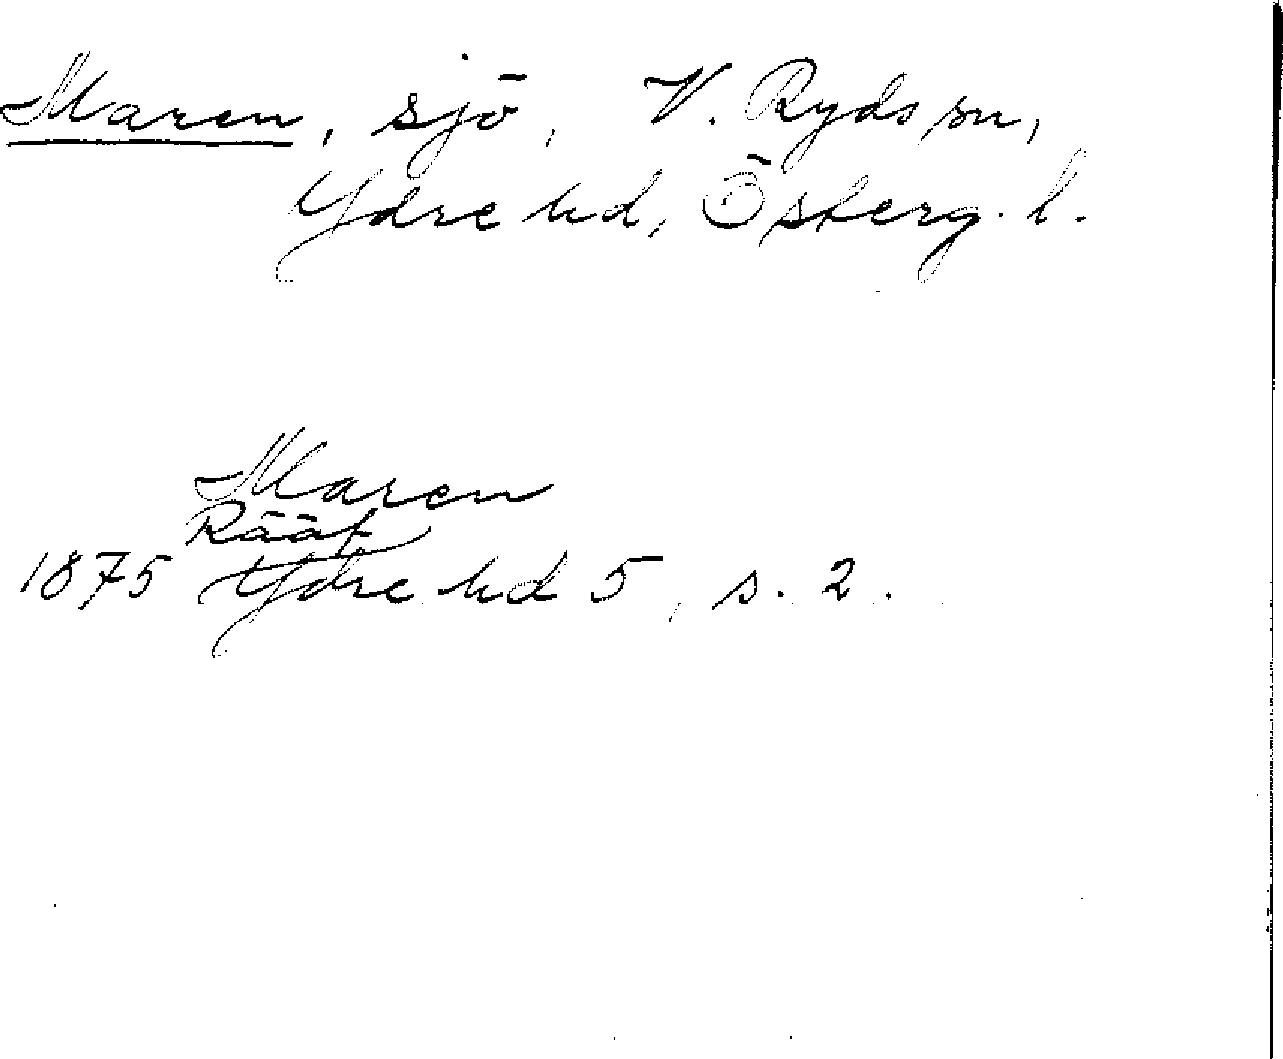 Maren, sjö, V. Ryds sn,
Ydre hd, Österg. l.
Maren
Rääf
1875 Ydre hd 5, s. 2.